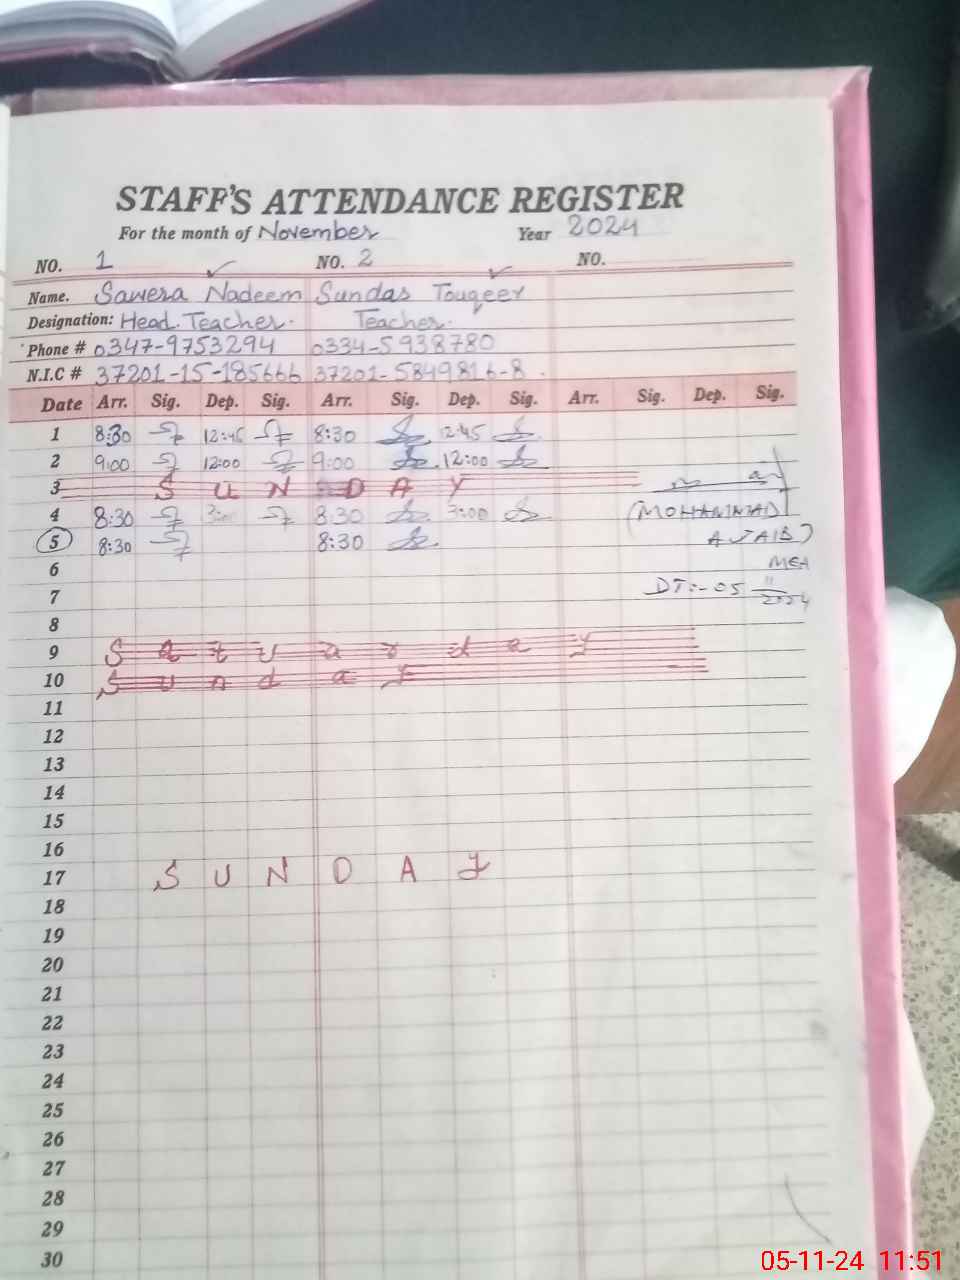 STAFF'S ATTENDANCE REGISTER
For the month of November Year 2024
NO. 1 NO. 2 NO.
Name. Sawera Nadeem Sundas Touqeer
Designation: Head. Teacher. Teacher.
Phone # 0347-9753294 0334-5938780
N.I.C # 37201-15-185666 37201-5849816-8.
Date Arr. Sig. Dep. Sig. Arr. Sig. Dep. Sig. Arr. Sig. Dep. Sig.
1 8:30 12:45 8:30 2:45
2 9:00 12:00 9:00 12:00
3 S U N D A Y
4 8:30 8:30 3:00
(MOHAMMAD
5 8:30 8:30
AJAIB)
6
MEA
7
DT:-05 11 2024
8
9 S a t u a r d a y
10 S u n d a y
11
12
13
14
15
16
17 S U N D A Y
18
19
20
21
22
23
24
25
26
27
28
29
30
05-11-24 11:51